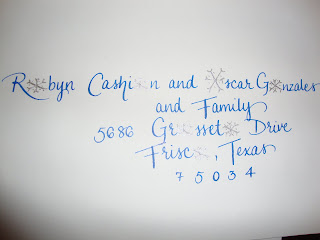 Robyn Cashion and Oscar Gonzales
and Family
5686 Grosseto Drive
Frisco, Texas
75034